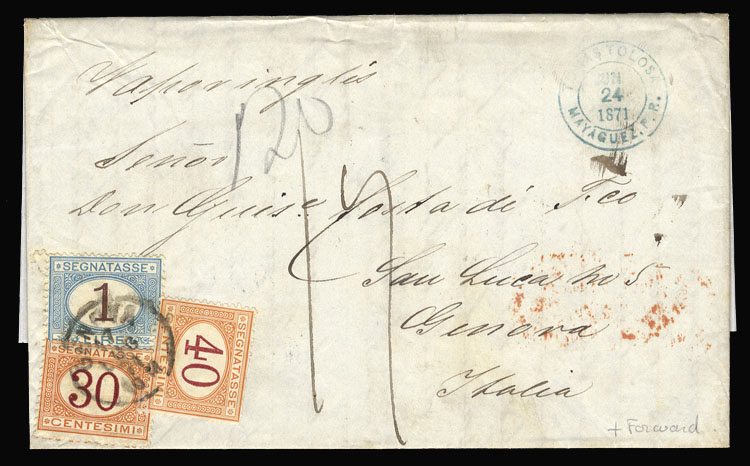 Vapor inglés
JUN
24
1871
MAYAGUEZ, P.R.
120
Señor
Don Guise. Costa di Fco
San Luca No 5
Genova
Italia
SEGNATASSE
1
LIRE
SEGNATASSE
30
CENTESIMI
SEGNATASSE
40
CENTESIMI
+ Forward